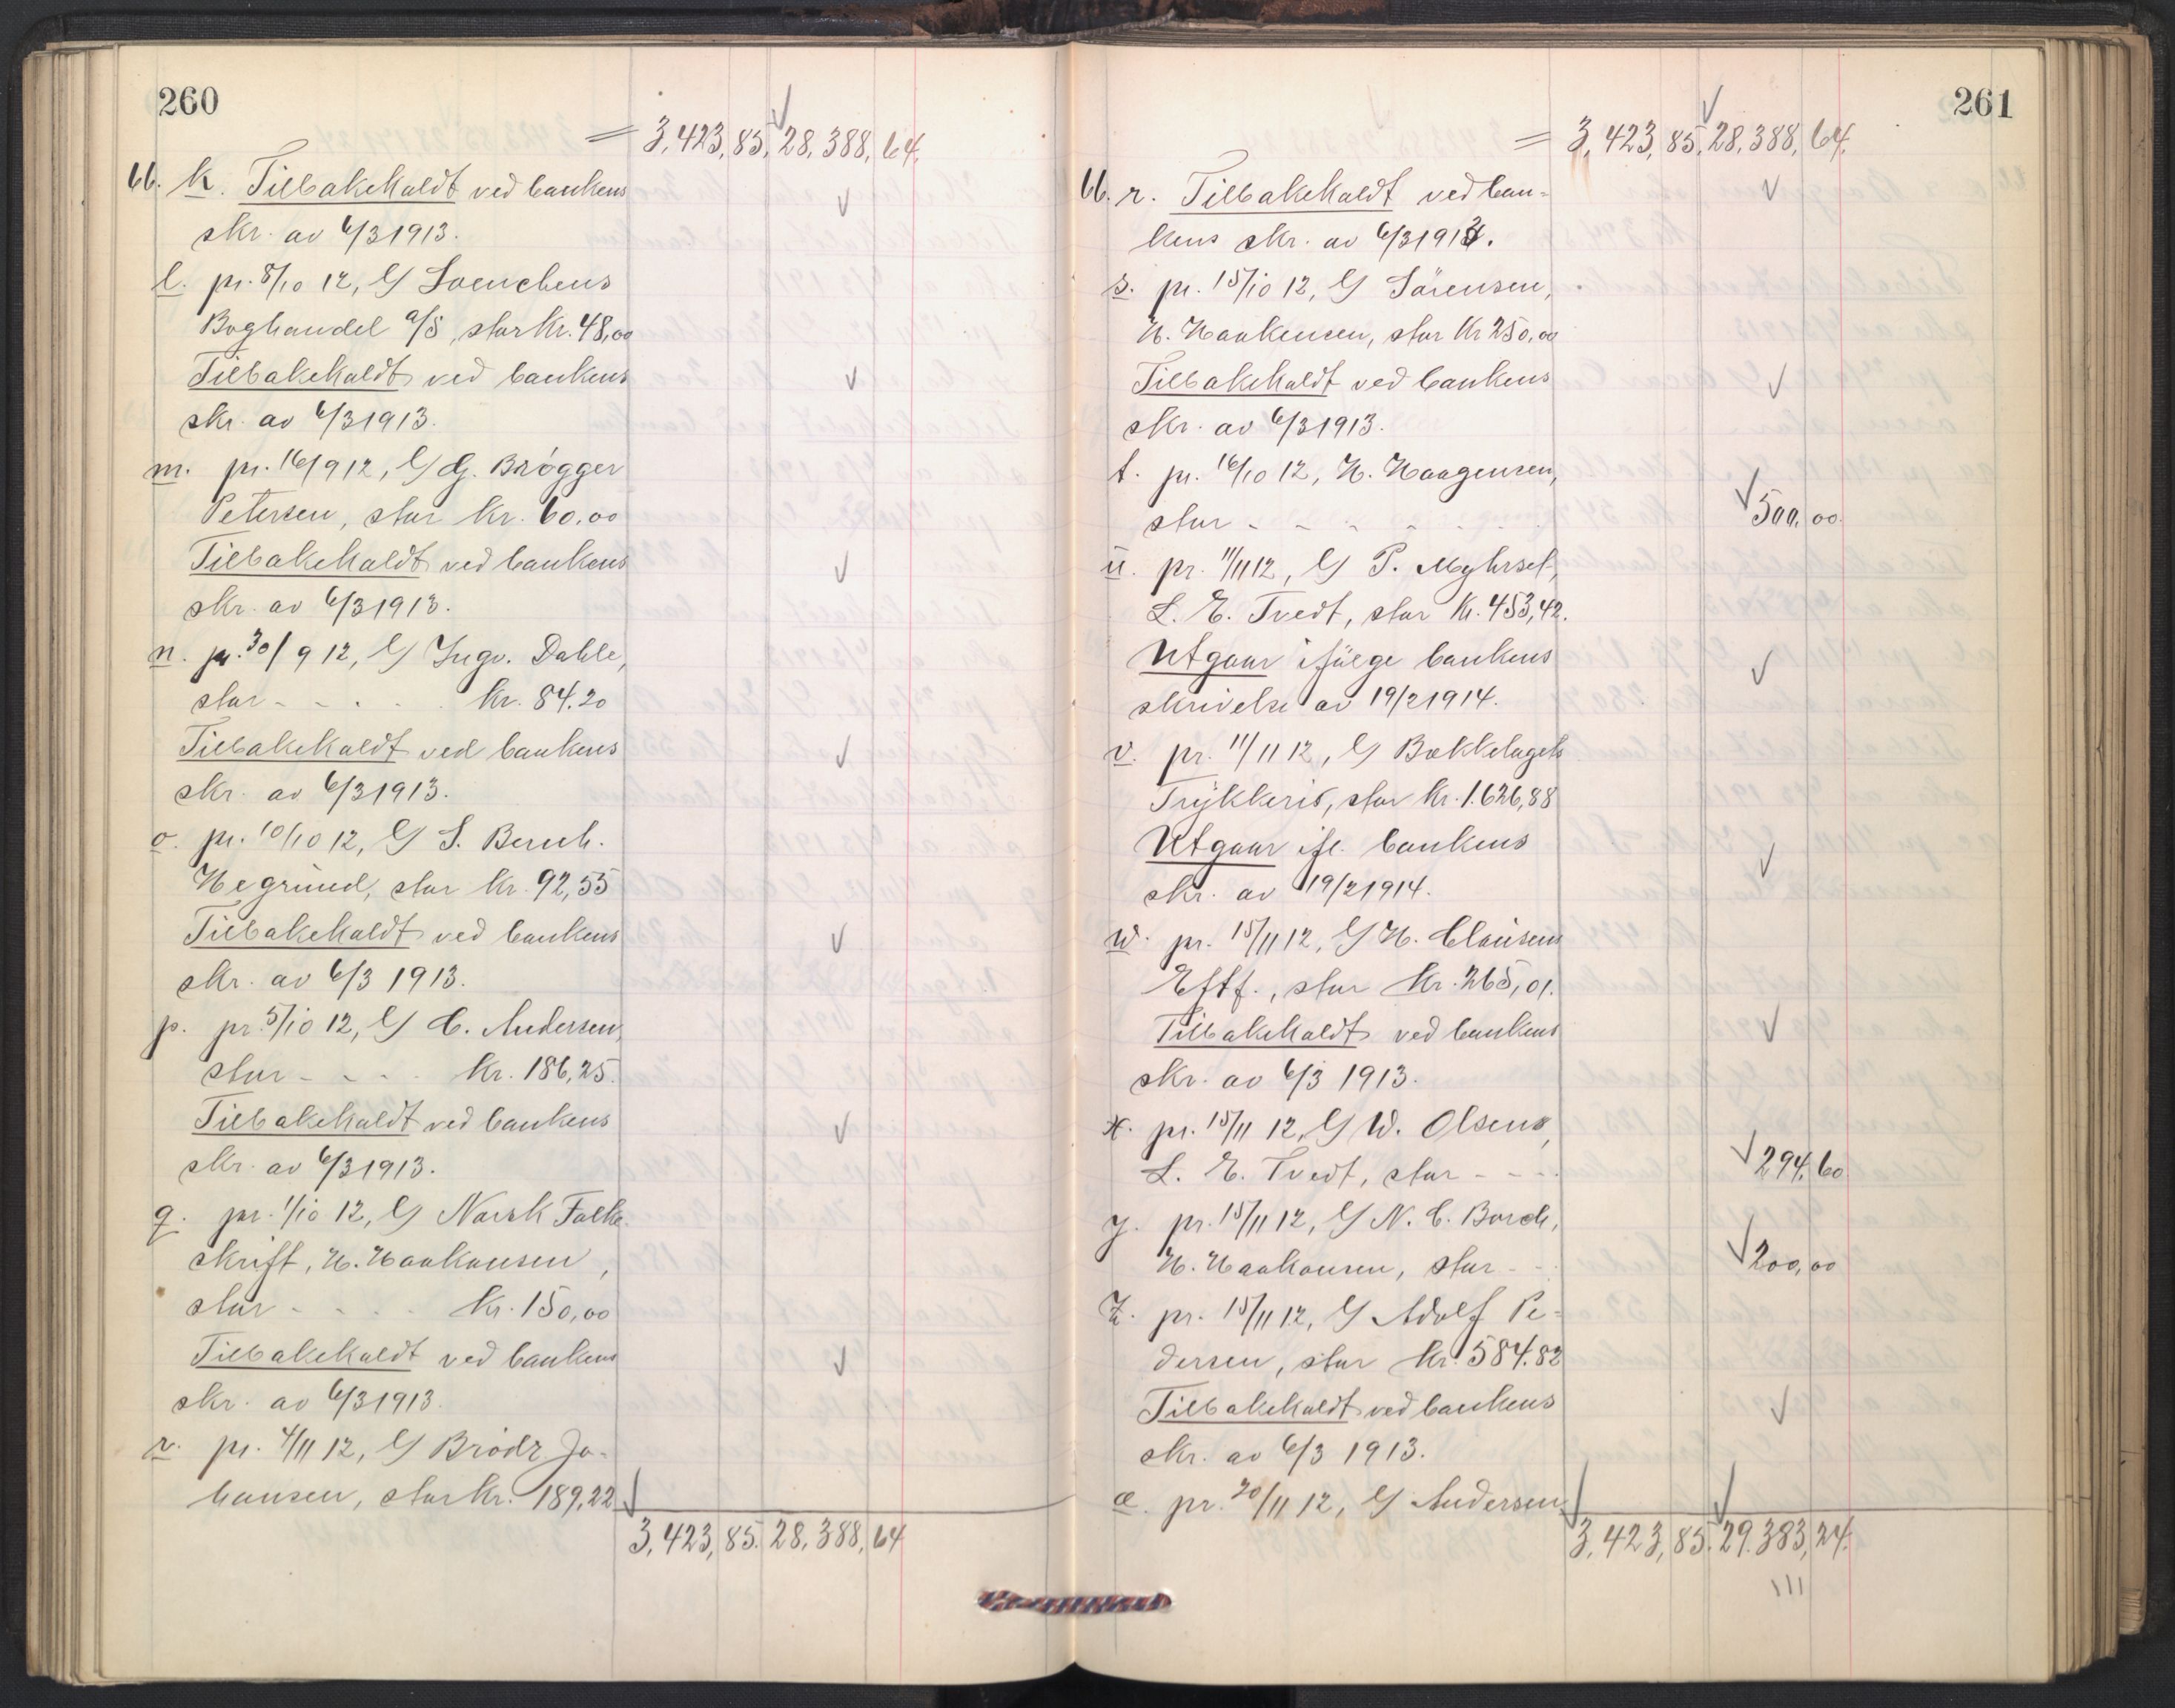 260
= 3,423,85. 28,388,64.
66. k. Tilbakekaldt ved bankens
skr. av 6/3 1913.
l. pr. 8/10 12, G/ Loenchens
Boghandel a/s, stor kr. 48,00
Tilbakekaldt ved bankens
skr. av 6/3 1913.
m. pr. 16/9 12, G/ G. Brögger
Petersen, stor kr. 60,00
Tilbakekaldt ved bankens
skr. av 6/3 1913.
n. pr. 30/9 12, G/ Ingv. Dahle,
stor - - - - kr. 84.20
Tilbakekaldt ved bankens
skr. av 6/3 1913.
o. pr. 10/10 12, G/ S. Bernh.
Hegrund, stor kr. 92,55
Tilbakekaldt ved bankens
skr. av 6/3 1913.
p. pr. 5/10 12, G/ C. Andersen,
stor - - - - kr. 186,25.
Tilbakekaldt ved bankens
skr. av 6/3 1913.
q. pr. 1/10 12, G/ Norsk Folke
skrift, H. Haakonsen,
stor - - - - kr. 150,00
Tilbakekaldt ved bankens
skr. av 6/3 1913.
r. pr. 4/11 12, G/ Brödr. Jo-
hansen, stor kr. 189,22
3,423,85. 28,388,64
261
= 3,423,85. 28,388,64.
66. r. Tilbakekaldt ved ban-
kens skr. av 6/3 1913.
s. pr. 15/10 12, G/ Sörensen,
H. Haakensen, stor kr 250,00
Tilbakekaldt ved bankens
skr. av 6/3 1913.
t. pr. 16/10 12, H. Haagensen,
stor - - - - - - 500,00.
u. pr. 11/11 12, G/ P. Myhrset,
L. E. Tvedt, stor kr. 453,42.
Utgaar ifölge bankens
skrivelse av 19/2 1914.
v. pr. 11/11 12, G/ Bækkelagets
Trykkeri, stor kr. 1.626,88
Utgaar ifl. bankens
skr. av 19/2 1914.
w. pr. 15/11 12, G/ H. Clausens
Eftf., stor kr. 265,01.
Tilbakekaldt ved bankens
skr. av 6/3 1913.
x. pr. 15/11 12, G/ W. Olsens,
L. E. Tvedt, stor - - - 294,60
y. pr. 15/11 12, G/ N. C. Borch,
H. Haakonsen, stor - - 200,00
z. pr. 15/11 12, G/ Adolf Pe-
dersen, stor kr. 584.82
Tilbakekaldt ved bankens
skr. av 6/3 1913.
æ. pr. 20/11 12, G/ Andersen
3,423,85. 29.383,24.